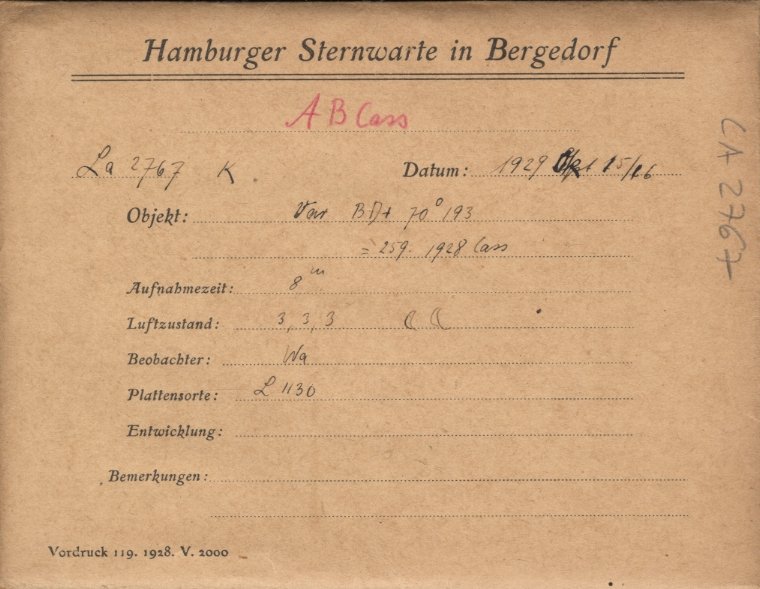 Hamburger Sternwarte in Bergedorf
AB Cass
La 2767 K Datum: 1929 Okt 15/16
Objekt: Var BD+ 70° 193
= 259. 1928 Cass
Aufnahmezeit: 8 m
Luftzustand: 3, 3, 3
Beobachter: Wa
Plattensorte: L 1130
Entwicklung:
Bemerkungen:
Vordruck 119. 1928. V. 2000
LA 2767